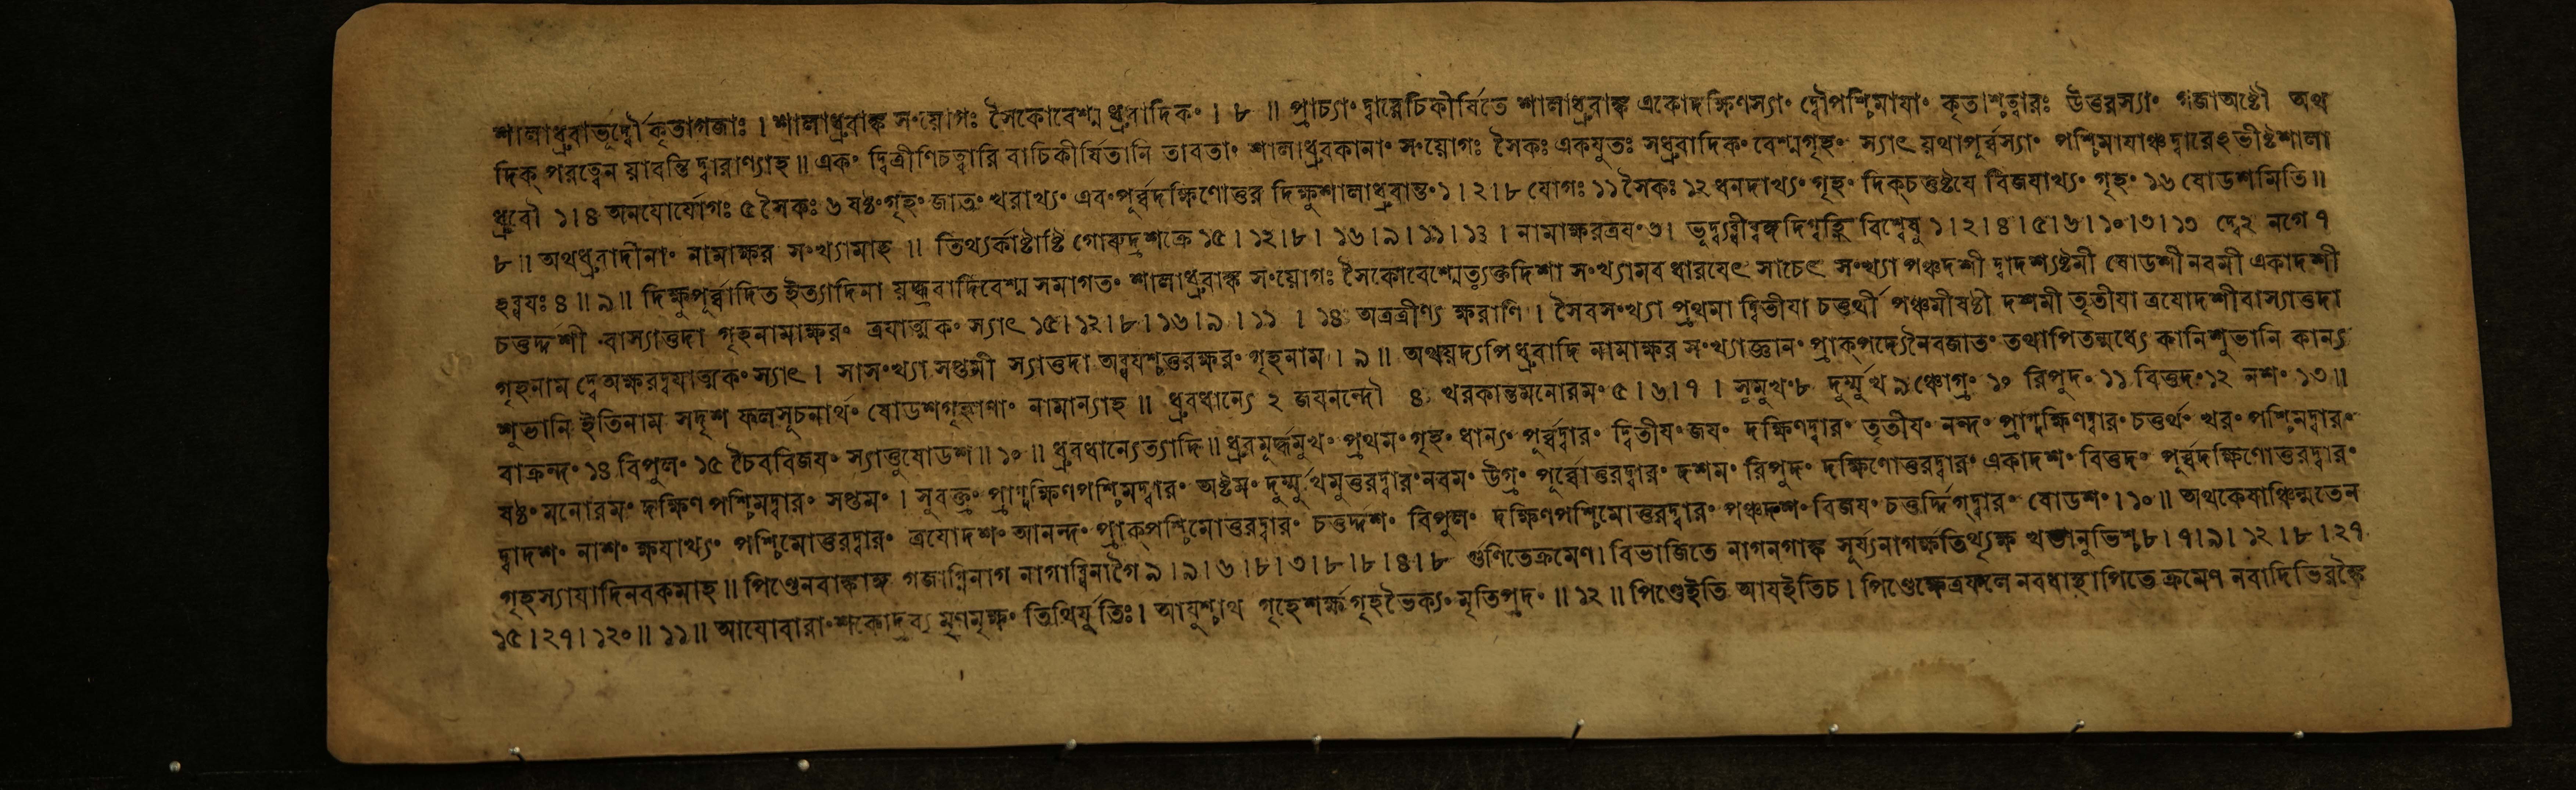 শালাধ্রুবাভূর্দ্বৌ কৃতাগজাঃ । শালাধ্রুবাঙ্ক সংযোগঃ সৈকোবেশ্ম ধ্রুবাদিকং । ৮ ॥ প্রাচ্যাং দ্বারেচিকীর্ষিতে শালাধ্রুবাঙ্ক একোদক্ষিণস্যাং দ্বৌপশ্চিমাযাং কৃতাশ্চত্বারঃ উত্তরস্যাং গজাঅষ্টৌ অথ
দিক্ পরত্বেন য়াবন্তি দ্বারাণ্যাহ ॥ একং দ্বিত্রীণিচত্বারি বাচিকীর্ষিতানি তাবতাং শালাধ্রুবকানাং সংয়োগঃ সৈকঃ একযুতঃ সধ্রুবাদিকং বেশ্মগৃহং স্যাৎ য়থাপূর্ব্বস্যাং পশ্চিমাযাঞ্চদ্বারেঽভীষ্টশালা
ধ্রুবৌ ১।৪ অনযোর্যোগঃ ৫ সৈকঃ ৬ ষষ্ঠংগৃহং জাত্রং খরাখ্যং এবংপূর্ব্বদক্ষিণোত্তর দিক্ষুশালাধ্রুবান্তং ১।২।৮ যোগঃ ১১ সৈকঃ ১২ ধনদাখ্যং গৃহং দিক্চত্তুষ্টযে বিজযাখ্যং গৃহং ১৬ ষোডশমিতি ॥
৮ ॥ অথধ্রুবাদীনাং নামাক্ষর সংখ্যামাহ ॥ তিথ্যর্কাষ্টাষ্টি গোরুদ্রশক্রে ১৫।১২।৮।১৬।৯।১১।১৪ । নামাক্ষরত্রযং ৩। ভূদ্ব্যব্ধীষ্বঙ্গদিগ্বহ্নি বিশ্বেষু ১।২।৪।৫।৬।১০।৩।১৩ দ্বে২ নগে ৭
ঽব্ধযঃ ৪ ॥ ৯ ॥ দিক্ষুপূর্ব্বাদিত ইত্যাদিনা য়দ্ধ্রুবাদিবেশ্ম সমাগতং শালাধ্রুবাঙ্ক সংযোগঃ সৈকোবেশ্মেত্যুক্তদিশা সংখ্যামবধারযেৎ সাচেৎ সংখ্যা পঞ্চদশী দ্বাদশ্যষ্টমী ষোডশী নবমী একাদশী
চত্তুর্দ্দশী বাস্যাত্তদা গৃহনামাক্ষরং ত্রযাত্মকং স্যাৎ ১৫।১২।৮।১৬।৯।১১।১৪ অত্রত্রীণ্য ক্ষরাণি । সৈবসংখ্যা প্রথমা দ্বিতীযা চত্তুর্থী পঞ্চমীষষ্ঠী দশমী তৃতীযা ত্রযোদশীবাস্যাত্তদা
গৃহনাম দ্বেঅক্ষরদ্বযাত্মকং স্যাৎ । সাসংখ্যা সপ্তমী স্যাত্তদা অব্ধযশ্চত্তুরক্ষরং গৃহনাম । ৯ ॥ অথয়দ্যপিধ্রুবাদি নামাক্ষর সংখ্যাজ্ঞানং প্রাক্পদ্যেনৈবজাতং তথাপিতন্মধ্যে কানিশুভানি কান্য
শুভানি ইতিনাম সদৃশ ফলসূচনার্থং ষোডশগৃহাণাং নামান্যাহ ॥ ধ্রুবধান্যে ২ জযনন্দৌ ৪ খরকান্তমনোরমং ৫।৬।৭ । সুমুখং৮ দুর্ম্মুখ ৯ ঞ্চোগ্রং ১০ রিপুদং ১১ বিত্তদং১২ নশং ১৩ ॥
বাক্রন্দং ১৪ বিপুলং ১৫ চৈববিজযং স্যাত্তুষোডশ ॥ ১০ ॥ ধ্রুবধান্যেত্যাদি ॥ ধ্রুবমূর্দ্ধমুখং প্রথমং গৃহং ধান্যং পূর্ব্বদ্বারং দ্বিতীযং জযং দক্ষিণদ্বারং তৃতীযং নন্দং প্রাগ্দক্ষিণদ্বারং চত্তুর্থং খরং পশ্চিমদ্বারং
ষষ্ঠং মনোরমং দক্ষিণ পশ্চিমদ্বারং সপ্তমং । সুবক্ত্রং প্রাগ্দক্ষিণপশ্চিমদ্বারং অষ্টমং দুর্ম্মুখমুত্তরদ্বারং নবমং উগ্রং পূর্ব্বোত্তরদ্বারং দশমং রিপুদং দক্ষিণোত্তরদ্বারং একাদশং বিত্তদং পূর্ব্বদক্ষিণোত্তরদ্বারং
দ্বাদশং নাশং ক্ষযাখ্যং পশ্চিমোত্তরদ্বারং ত্রযোদশং আনন্দং প্রাক্পশ্চিমোত্তরদ্বারং চত্তুর্দ্দশং বিপুলং দক্ষিণপশ্চিমোত্তরদ্বারং পঞ্চদশং বিজযং চত্তুর্দ্দিগ্দ্বারং ষোডশং । ১০ ॥ অথকেষাঞ্চিন্মতেন
গৃহস্যাযাদিনবকমাহ ॥ পিণ্ডেনবাঙ্কাঙ্গ গজাগ্নিনাগ নাগাব্ধিনাগৈ ৯।৯।৬।৮।৩।৮।৮।৪।৮ র্গুণিতেক্রমেণ। বিভাজিতে নাগনগাঙ্ক সূর্য্যনাগর্ক্ষতিথ্যৃক্ষ খভানুভিশ্চ ৮।৭।৯।১২।৮।২৭
১৫।২৭।১২০ ॥ ১১ ॥ আযোবারাংশকোদ্রব্য মৃণমৃক্ষং তিথির্যুতিঃ । আযুশ্চাথ গৃহেশর্ক্ষ গৃহভৈক্যং মৃতিপ্রদং ॥ ১২ ॥ পিণ্ডেইতি আযইতিচ । পিণ্ডেক্ষেত্রফলে নবধাস্থাপিতে ক্রমেণ নবাদিভিরঙ্কৈ